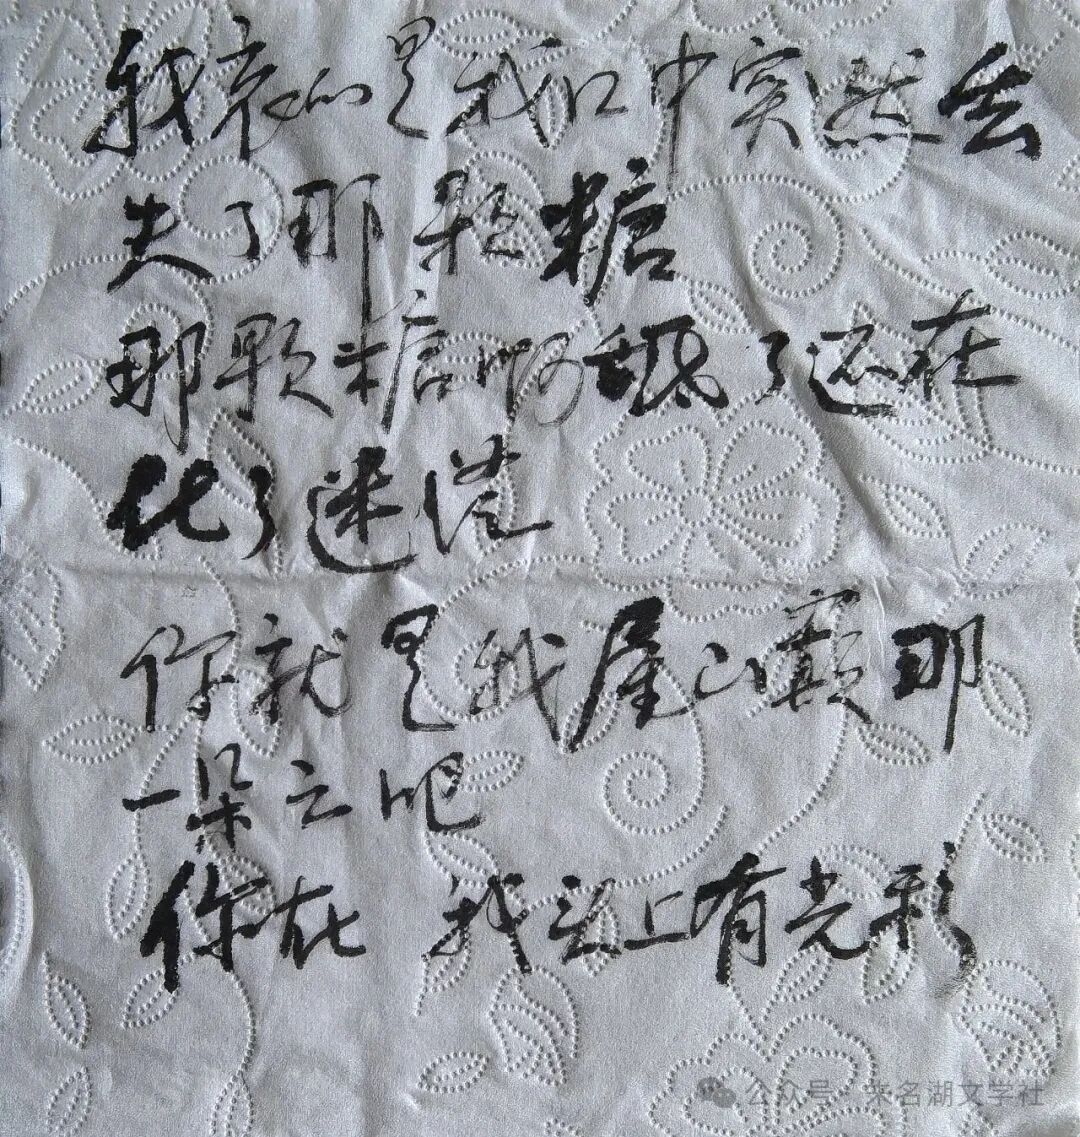 我哀的是我口中突然去
失了那颗糖
那颗糖啊舐了还在
化了迷茫
你就是我屋山巅那
一朵云吧
你在 我头上有光彩
公众号·来名湖文学社